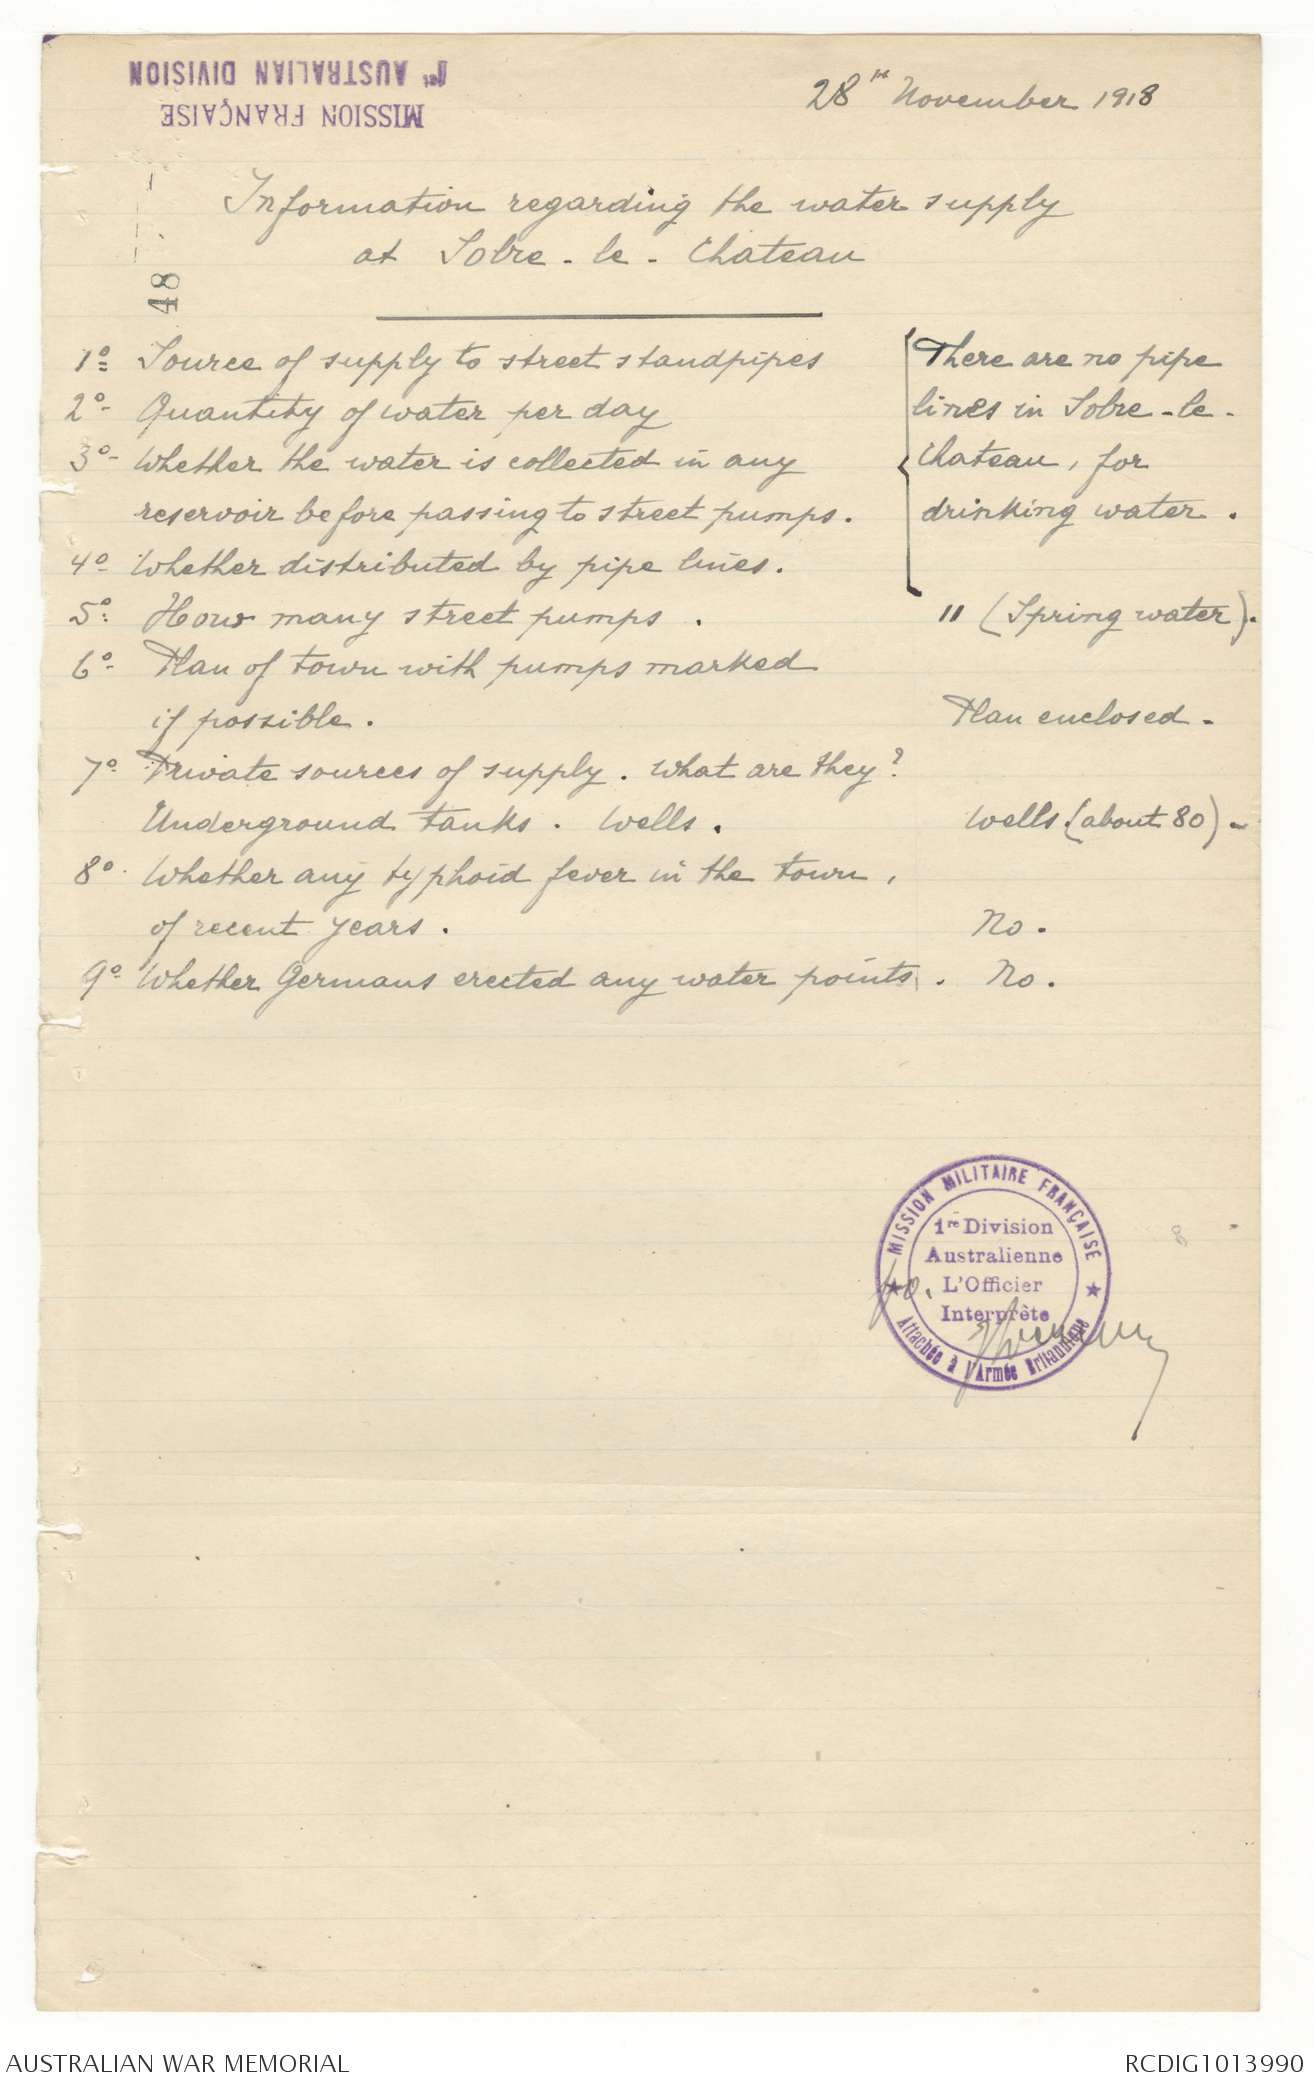 MISSION FRANÇAISE
1re AUSTRALIAN DIVISION
28th November 1918
Information regarding the water supply
at Solre - le - Chateau
48
1º Source of supply to street standpipes
2º Quantity of water per day
3º Whether the water is collected in any
reservoir before passing to street pumps.
4º Whether distributed by pipe lines.
There are no pipe
lines in Solre - le -
Chateau, for
drinking water.
5º How many street pumps. 11 (Spring water).
6º Plan of town with pumps marked
if possible. Plan enclosed.
7º Private sources of supply. What are they?
Underground tanks. Wells. Wells. (about 80).
8º Whether any typhoid fever in the town,
of recent years. No.
9º Whether Germans erected any water points. No.
MISSION MILITAIRE FRANÇAISE
1re Division
Australienne
L'Officier
Interprète
Attachée à l'Armée Britannique
AUSTRALIAN WAR MEMORIAL
RCDIG1013990